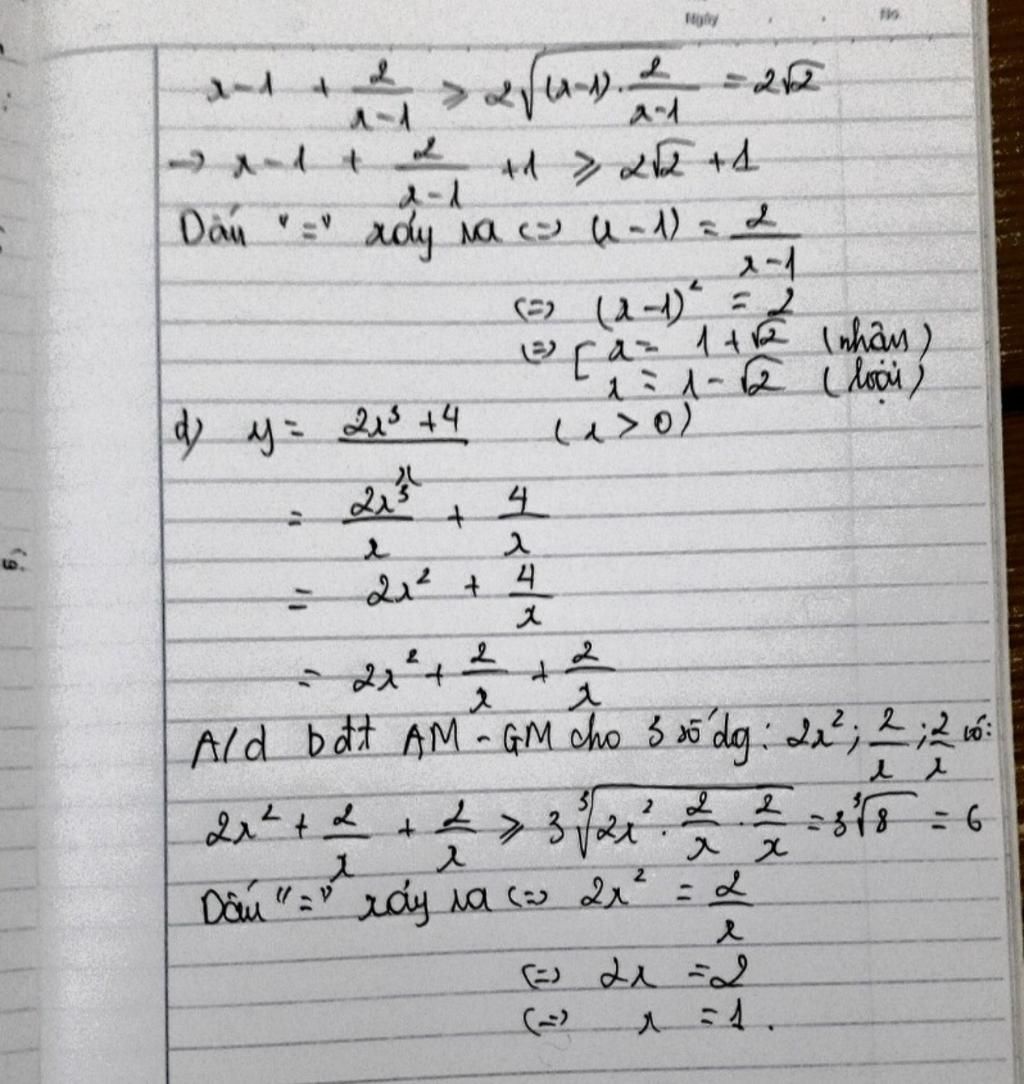 Ngày No
x-1 + 2/(x-1) ⩾ 2√((x-1)·2/(x-1)) = 2√2
→ x-1 + 2/(x-1) +1 ⩾ 2√2 +1
Dấu "=" xảy ra <=> (x-1) = 2/(x-1)
<=> (x-1)² = 2
<=> [ x = 1+√2 (nhận)
x = 1-√2 (loại)
d) y = (2x³+4)/x (x>0)
= 2x³/x + 4/x
= 2x² + 4/x
= 2x² + 2/x + 2/x
A/d bđt AM-GM cho 3 số dg: 2x²; 2/x; 2/x có:
2x² + 2/x + 2/x ⩾ 3∛(2x²·2/x·2/x) = 3∛8 = 6
Dấu "=" xảy ra <=> 2x² = 2/x
<=> 2x = 2
<=> x = 1.